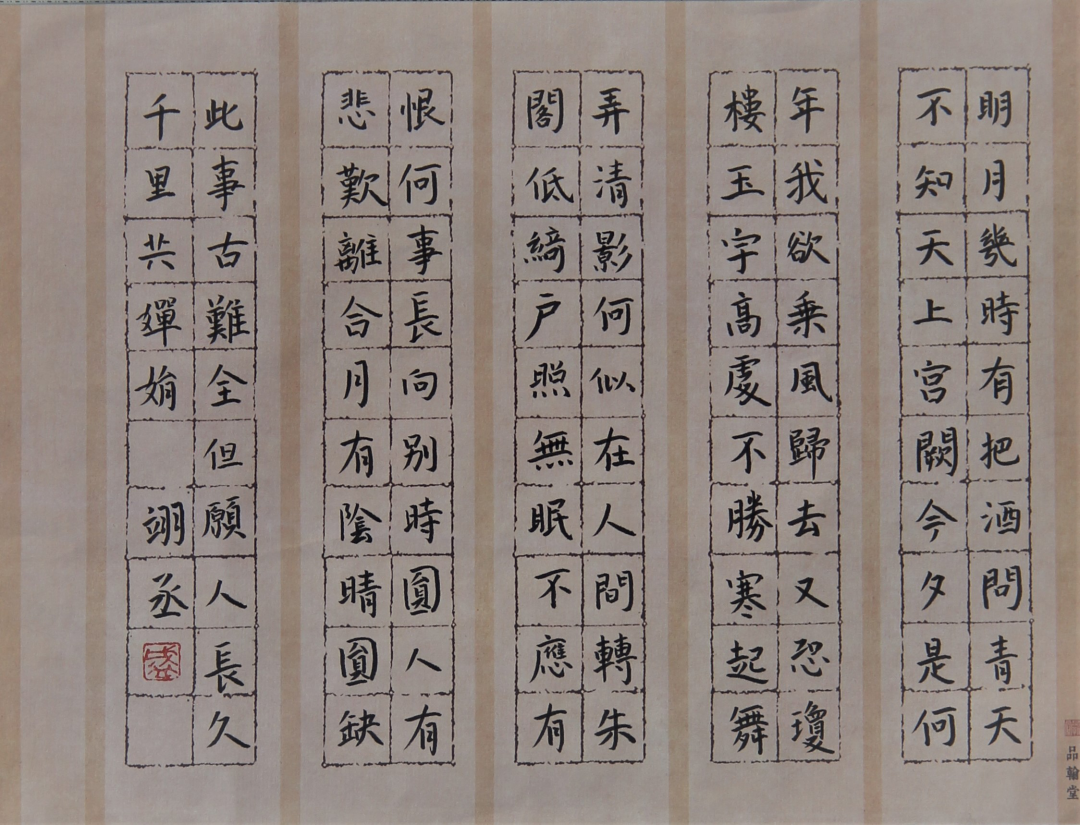 明月幾時有把酒問青天
不知天上宮闕今夕是何
年我欲乗風歸去又恐瓊
樓玉宇高處不勝寒起舞
弄清影何似在人間轉朱
閣低綺戶照無眠不應有
恨何事長向別時圓人有
悲歎離合月有陰晴圓缺
此事古難全但願人長久
千里共嬋娟 翊丞
品翰堂